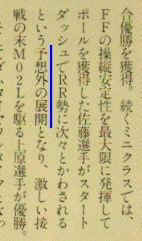 今優勝を獲得。続くミニクラスでは、
FFの操縦安定性を最大限に発揮して
ポールを獲得した佐藤選手がスタート
ダッシュでRR勢に次々とかわされる
という予想外の展開となり、激しい接
戦の末M02Lを駆る上原選手が優勝。